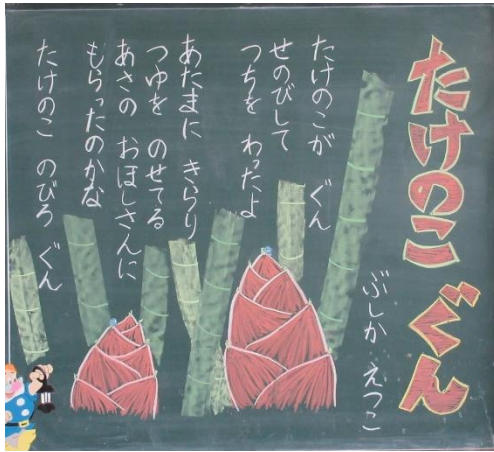 たけのこ ぐん
ぶしか えつこ
たけのこが ぐん
せのびして
つちを わったよ
あたまに きらり
つゆを のせてる
あさの おほしさんに
もらったのかな
たけのこ のびろ ぐん